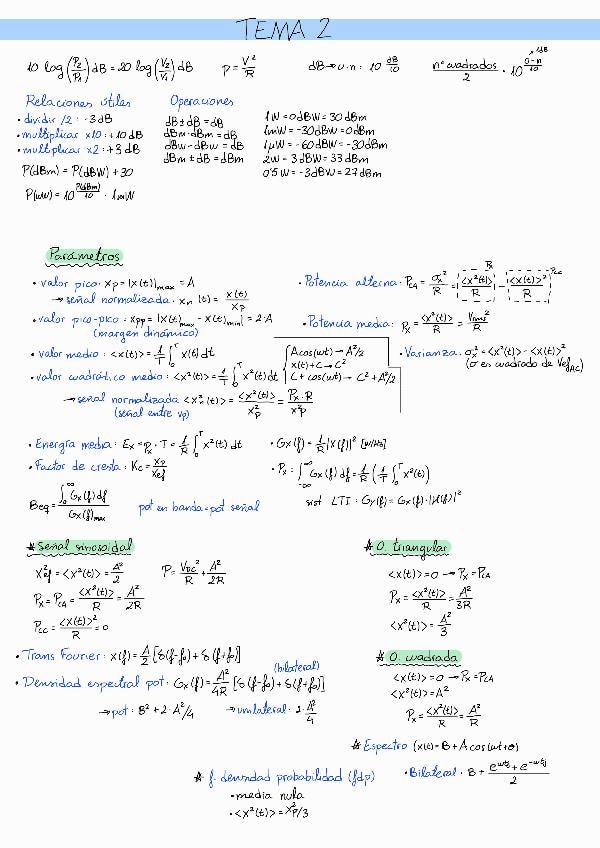 TEMA 2
10 log(P₂/P₁) dB = 20 log(V₂/V₁) dB   P = V²/R   dB → u.n: 10^(dB/10)   nº cuadrados/2 · 10^((0-n)/10)
Relaciones útiles
• dividir /2: -3dB
• multiplicar x10: +10 dB
• multiplicar x2: +3 dB
P(dBm) = P(dBW) + 30
P(mW) = 10^(P(dBm)/10) · 1mW
Operaciones
dB ± dB = dB
dBm - dBm = dB
dBW - dBW = dB
dBm ± dB = dBm
1W = 0dBW = 30 dBm
1mW = -30dBW = 0dBm
1μW = -60dBW = -30dBm
2W = 3dBW = 33 dBm
0'5W = -3dBW = 27dBm
Parámetros
• valor pico: xp = |x(t)|max = A
→ señal normalizada: xn(t) = x(t)/xp
• valor pico-pico: xpp = |x(t)max - x(t)min| = 2·A
(margen dinámico)
• valor medio: <x(t)> = 1/T ∫₀ᵀ x(t) dt
• valor cuadrático medio: <x²(t)> = 1/T ∫₀ᵀ x²(t) dt
Acos(ωt) → A²/2
x(t) + C → C²
C + cos(ωt) → C² + A²/2
→ señal normalizada <xn²(t)> = <x²(t)>/xp² = Px·R/xp²
(señal entre vp)
• Potencia alterna: PCA = σx²/R = <x²(t)>/R - <x(t)>²/R
Px
Pcc
• Potencia media: Px = <x²(t)>/R = Vrms²/R
• Varianza: σx² = <x²(t)> - <x(t)>²
(σ es cuadrado de VefAC)
• Energía media: Ex = Px · T = 1/R ∫₀ᵀ x²(t) dt
• Factor de cresta: Kc = xp/xef
Beq = ∫₀^∞ Gx(f) df / Gx(f)max   pot en banda = pot señal
• Gx(f) = 1/R |X(f)|² [W/Hz]
• Px: ∫_-∞^∞ Gx(f) df = 1/R (1/T ∫₀ᵀ x²(t))
sist LTI: Gy(f) = Gx(f) · |H(f)|²
* señal sinosoidal
x²ef = <x²(t)> = A²/2   P = VDC²/R + A²/2R
Px = PCA = <x²(t)>/R = A²/2R
PCC = <x(t)>²/R = 0
• Trans Fourier: X(f) = A/2 [δ(f-f₀) + δ(f+f₀)]
(bilateral)
• Densidad espectral pot: Gx(f) = A²/4R [δ(f-f₀) + δ(f+f₀)]
→ pot: B² + 2·A²/4   → unilateral: 2·A²/4
* O. triangular
<x(t)> = 0 → Px = PCA
Px = <x²(t)>/R = A²/3R
<x²(t)> = A²/3
* O. cuadrada
<x(t)> = 0 → Px = PCA
<x²(t)> = A²
Px = <x²(t)>/R = A²/R
* Espectro (x(t) = B + A cos(ωt+θ)
• Bilateral: B +
* f. densidad probabilidad (fdp)
• media nula
• <x²(t)> = x²p/3